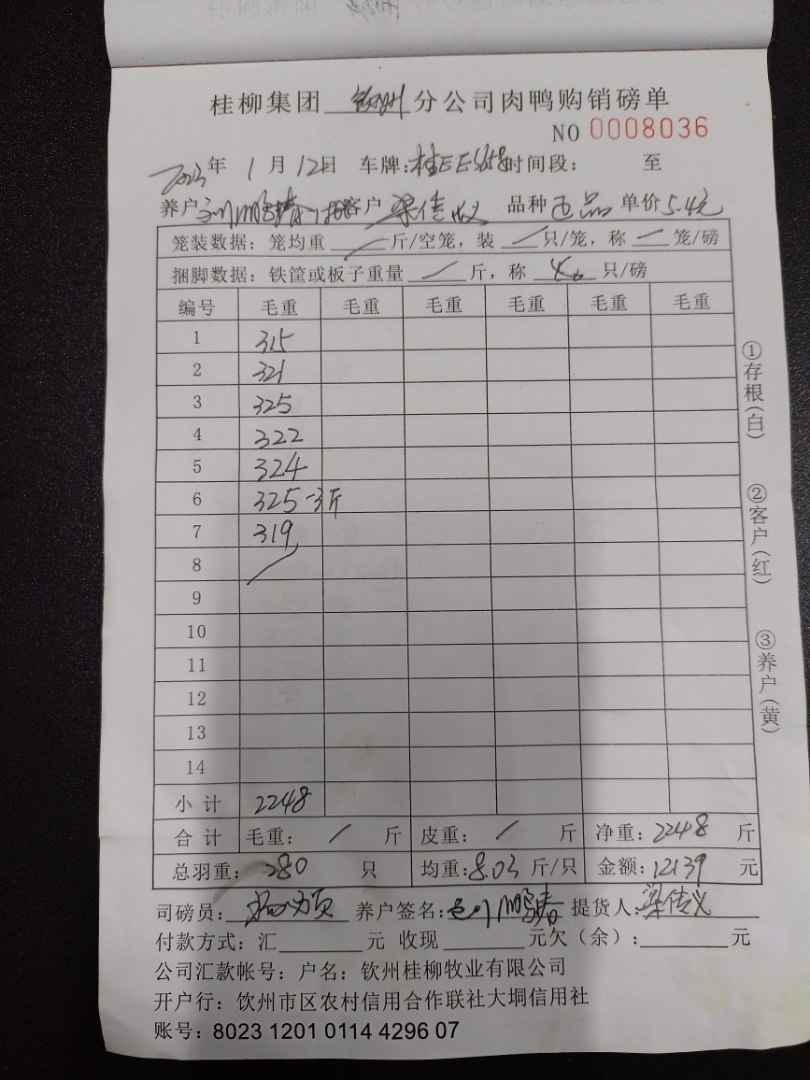 桂柳集团 钦州 分公司肉鸭购销磅单
NO 0008036
2023年 1月12日 车牌:桂EE5658 时间段: 至
养户 鹏 客户 梁佳义 品种 正品 单价 5.4元
笼装数据: 笼均重 / 斤/空笼, 装 / 只/笼, 称 / 笼/磅
捆脚数据: 铁筐或板子重量 / 斤, 称 40 只/磅
编号 毛重 毛重 毛重 毛重 毛重 毛重
1 315
2 321
3 325
4 322
5 324
6 325-3斤
7 319
8 /
9
10
11
12
13
14
小 计 2248
合 计 毛重: / 斤 皮重: / 斤 净重: 2248 斤
总羽重: 280 只 均重:8.03 斤/只 金额:12139 元
司磅员: 养户签名: 鹏 提货人:梁佳义
付款方式: 汇 元 收现 元欠(余): 元
公司汇款帐号: 户名: 钦州桂柳牧业有限公司
开户行: 钦州市区农村信用合作联社大垌信用社
账号: 8023 1201 0114 4296 07
①存根(白)
②客户(红)
③养户(黄)